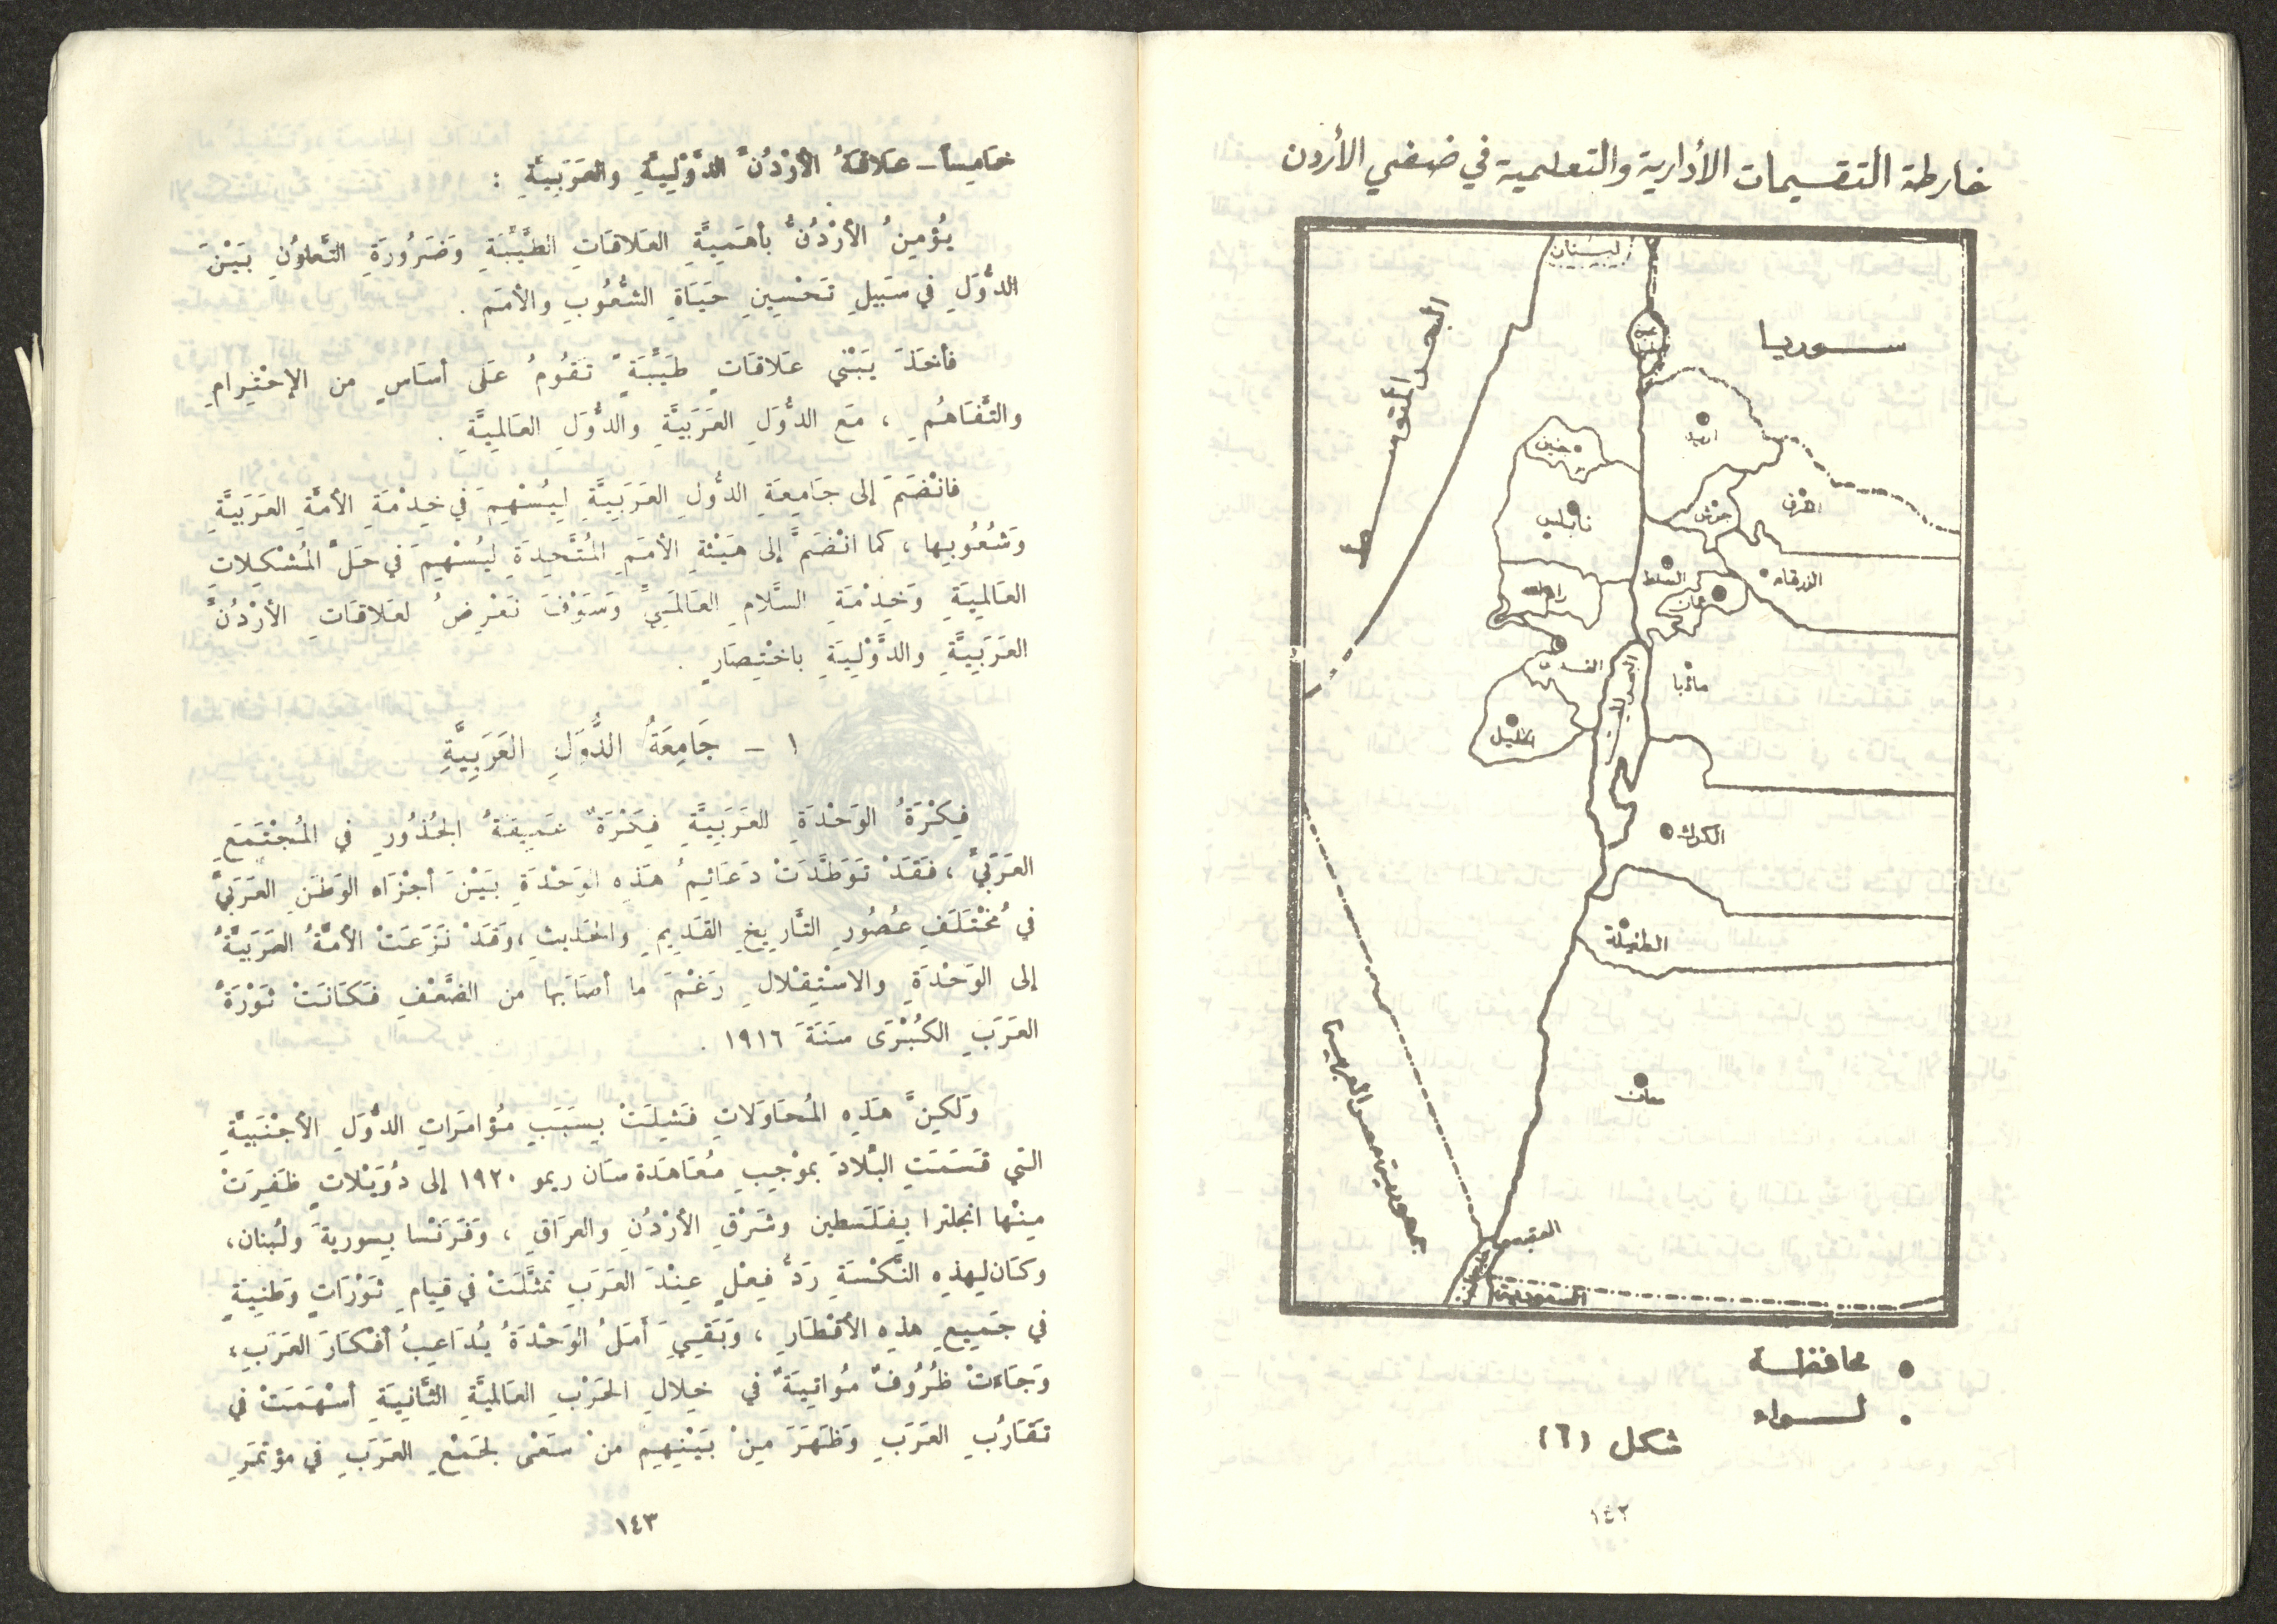 خارطة التقسيمات الأدارية والتعليمية في ضفتي الأردن
لبنان
سوريا
البحر المتوسط
اربد
جنين
المفرق
جرش
نابلس
السلط
الزرقاء
عمان
رام الله
القدس
مادبا
البحر الميت
الخليل
الكرك
الطفيلة
معان
جمهورية مصر العربية
العقبة
السعودية
• محافظة
• لواء
شكل (٦)
١٤٢
خَامِساً – عَلاقَةُ الأُرْدُنِّ الدَّوْلِيَّةِ والعَرَبِيَّةِ :
يُؤْمِنُ الأُرْدُنُّ بأهَمِيَّةِ العَلاقَاتِ الطَّيِّبَةِ وَضَرُورَةِ التَّعاوُنِ بَيْنَ
الدُّوَلِ في سَبيلِ تَحْسِينِ حَيَاةِ الشُّعُوبِ والأمَمِ .
فأخَذَ يَبْني عَلاقَاتٍ طَيِّبَةً تَقُومُ عَلَى أسَاسٍ من الإحْتِرامِ
والتَّفَاهُمِ ، مَعَ الدُّوَلِ العَرَبيَّةِ والدُّوَلِ العَالمِيَّةِ .
فانْضَمَّ إلى جَامِعَةِ الدُّولِ العَرَبِيَّةِ لِيُسْهِمَ في خِدْمَةِ الأمَّةِ العَرَبيَّةِ
وَشُعُوبِها ، كما انْضَمَّ إلى هَيْئةِ الأمَمِ المُتَّحِدَةِ ليُسْهِمَ في حَلِّ المُشْكِلاتِ
العَالمِيَةِ وَخِدْمَةِ السَّلامِ العَالَميِّ وَسَوْفَ نَعْرِضُ لعَلاقَاتِ الأرْدُنِّ
العَرَبيَّةِ والدَّوْلِيَةِ باخْتِصَارٍ .
١ – جَامِعَةُ الدُّوَلِ العَرَبِيَّةِ
فِكْرَةُ الوَحْدَةِ العَرَبِيَةِ فِكْرَةٌ عَمِيقَةُ الجُذُورِ في المُجْتَمَعِ
العَرَبيِّ ، فَقَدْ تَوَطَّدَتْ دَعَائِمُ هَذِهِ الوَحْدَةِ بَيْنَ أجْزَاءِ الوَطَنِ العَرَبيِّ
في مُخْتَلَفِ عُصُورِ التَّاريخِ القَدِيمِ والحَديثِ ، وَقَدْ نَزَعَتْ الأمَّةُ العَرَبيَّةُ
إلى الوَحْدَةِ والاسْتِقْلالِ رَغْمَ ما أصَابَها من الضَّعْفِ فَكَانَتْ ثَوْرَةُ
العَرَبِ الكُبْرَى سَنَةَ ١٩١٦ .
وَلكِنَّ هَذِهِ المُحَاوَلاتِ فَشِلَتْ بِسَبَبِ مُؤامَراتِ الدُّوَلِ الأجْنَبيَّةِ
التي قَسَمَتِ البْلادَ بموْجِبِ مُعَاهَدة سَان ريمو ١٩٢٠ إلى دُوَيْلاتٍ ظَفِرَتْ
مِنْها انجلترا بِفِلَسطين وشَرْقِ الأرْدُنِ والعراقِ ، وَفَرَنْسا بِسوريةَ ولُبنان،
وكَان لِهذِهِ النَّكْسَةِ رَدُّ فِعْلٍ عِنْدَ العَرَبِ تمثَّلَتْ في قِيامِ ثَوْرَاتٍ وَطَنِيَةٍ
في جَميعِ هذِهِ الأقْطَارِ ، وَبَقِيَ أمَلُ الوَحْدَةُ يُدَاعِبُ أفْكَارَ العَرَبِ،
وَجَاءَتْ ظُرُوفٌ مُواتِيَةٌ في خِلالِ الحَرْبِ العَالمِيَّةِ الثَّانِيَةِ أسْهَمَتْ في
تَقَارُبِ العَرَبِ وَظَهَرَ مِنْ بَيْنِهِم منْ سَعَى لجَمْعِ العَرَبِ في مؤتمَرِ
١٤٣